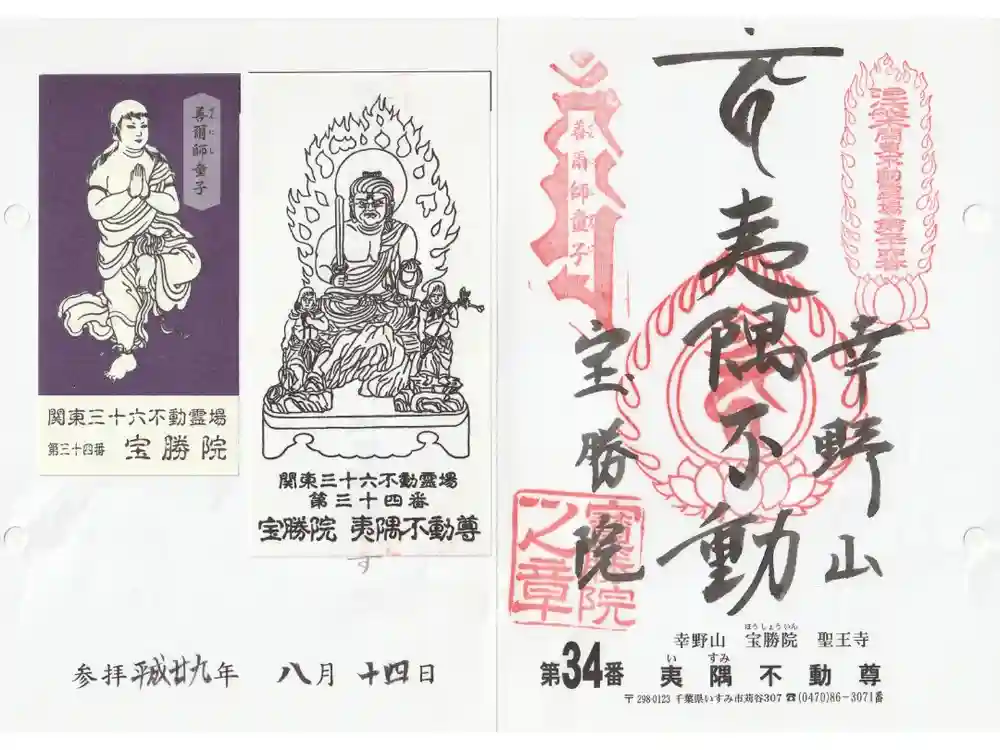 善爾師童子
ぜにし
関東三十六不動霊場
第三十四番 宝勝院
関東三十六不動霊場
第三十四番
宝勝院 夷隅不動尊
す
参拝平成廿九年 八月 十四日
善爾師童子
夷隅不動
幸野山
宝勝院
寳勝院
之章
ほうしょういん
幸野山 宝勝院 聖王寺
い すみ
第34番 夷隅不動尊
〒298-0123 千葉県いすみ市苅谷307 ☎(0470)86-3071番